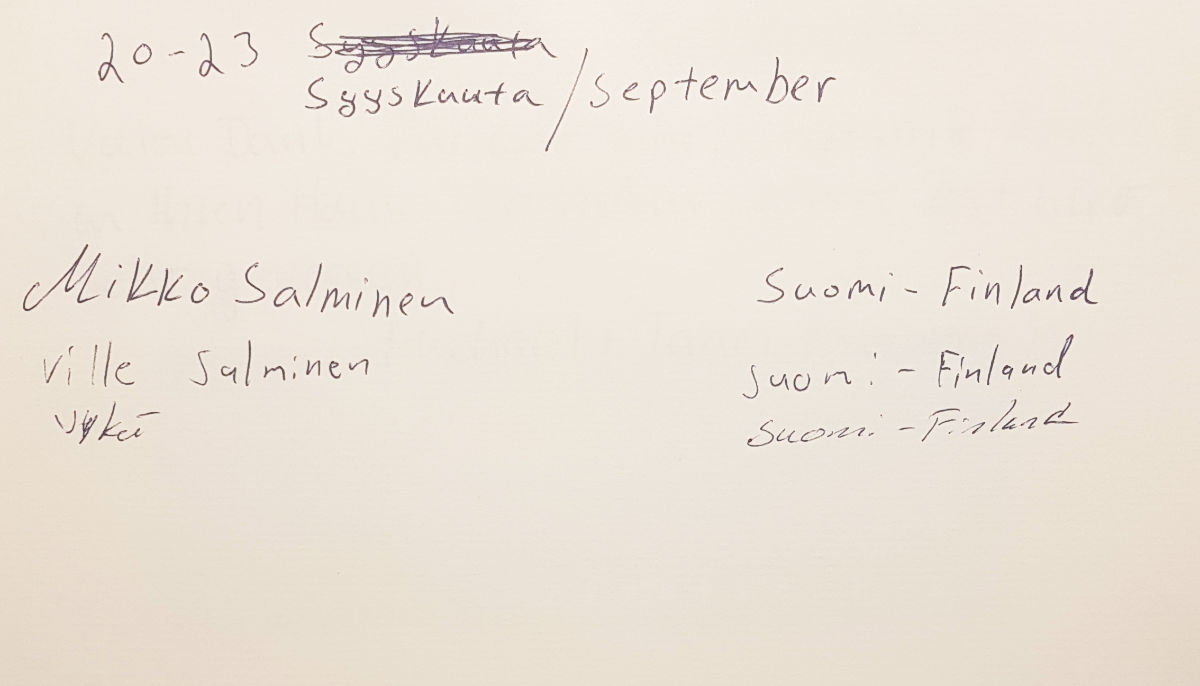 20-23 Syyskuuta
Syyskuuta / September
Mikko Salminen Suomi - Finland
Ville Salminen Suomi - Finland
Suomi - Finland